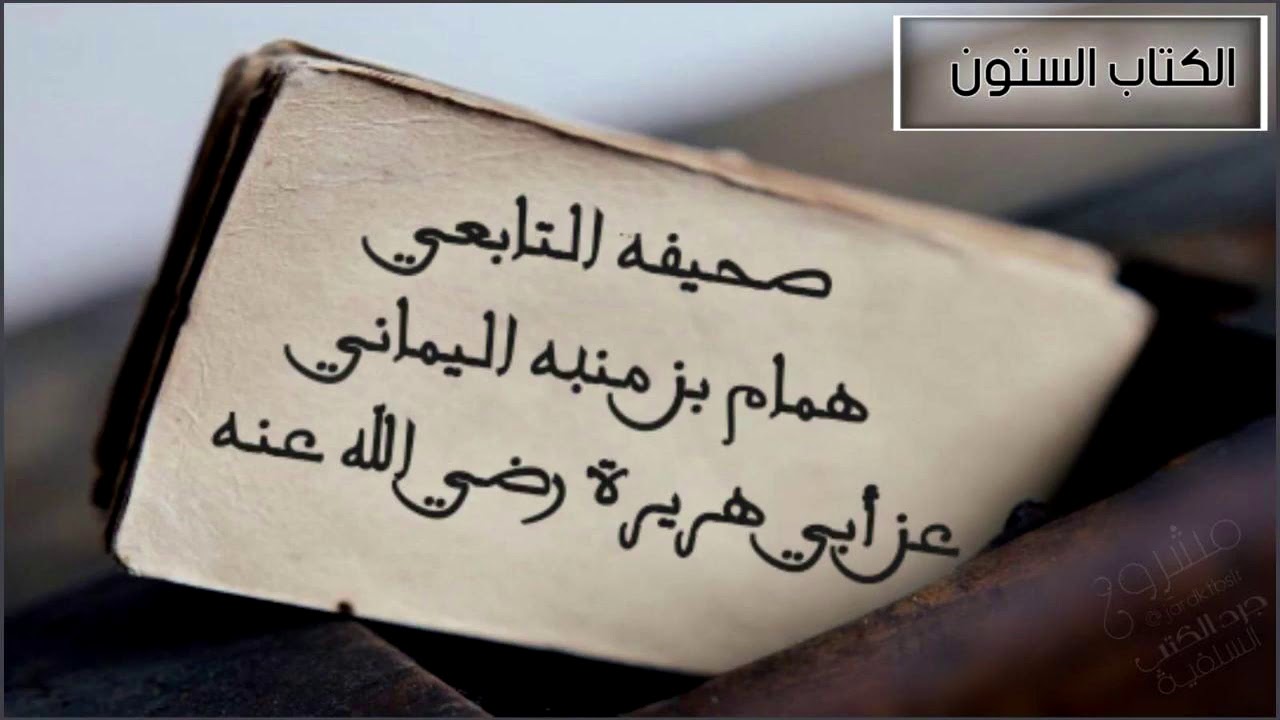 الكتاب الستون
صحيفه التابعي
همام بن منبه اليماني
عن أبي هريرة رضي الله عنه
مشروع
@jardktbslf
جرد الكتب
السلفية